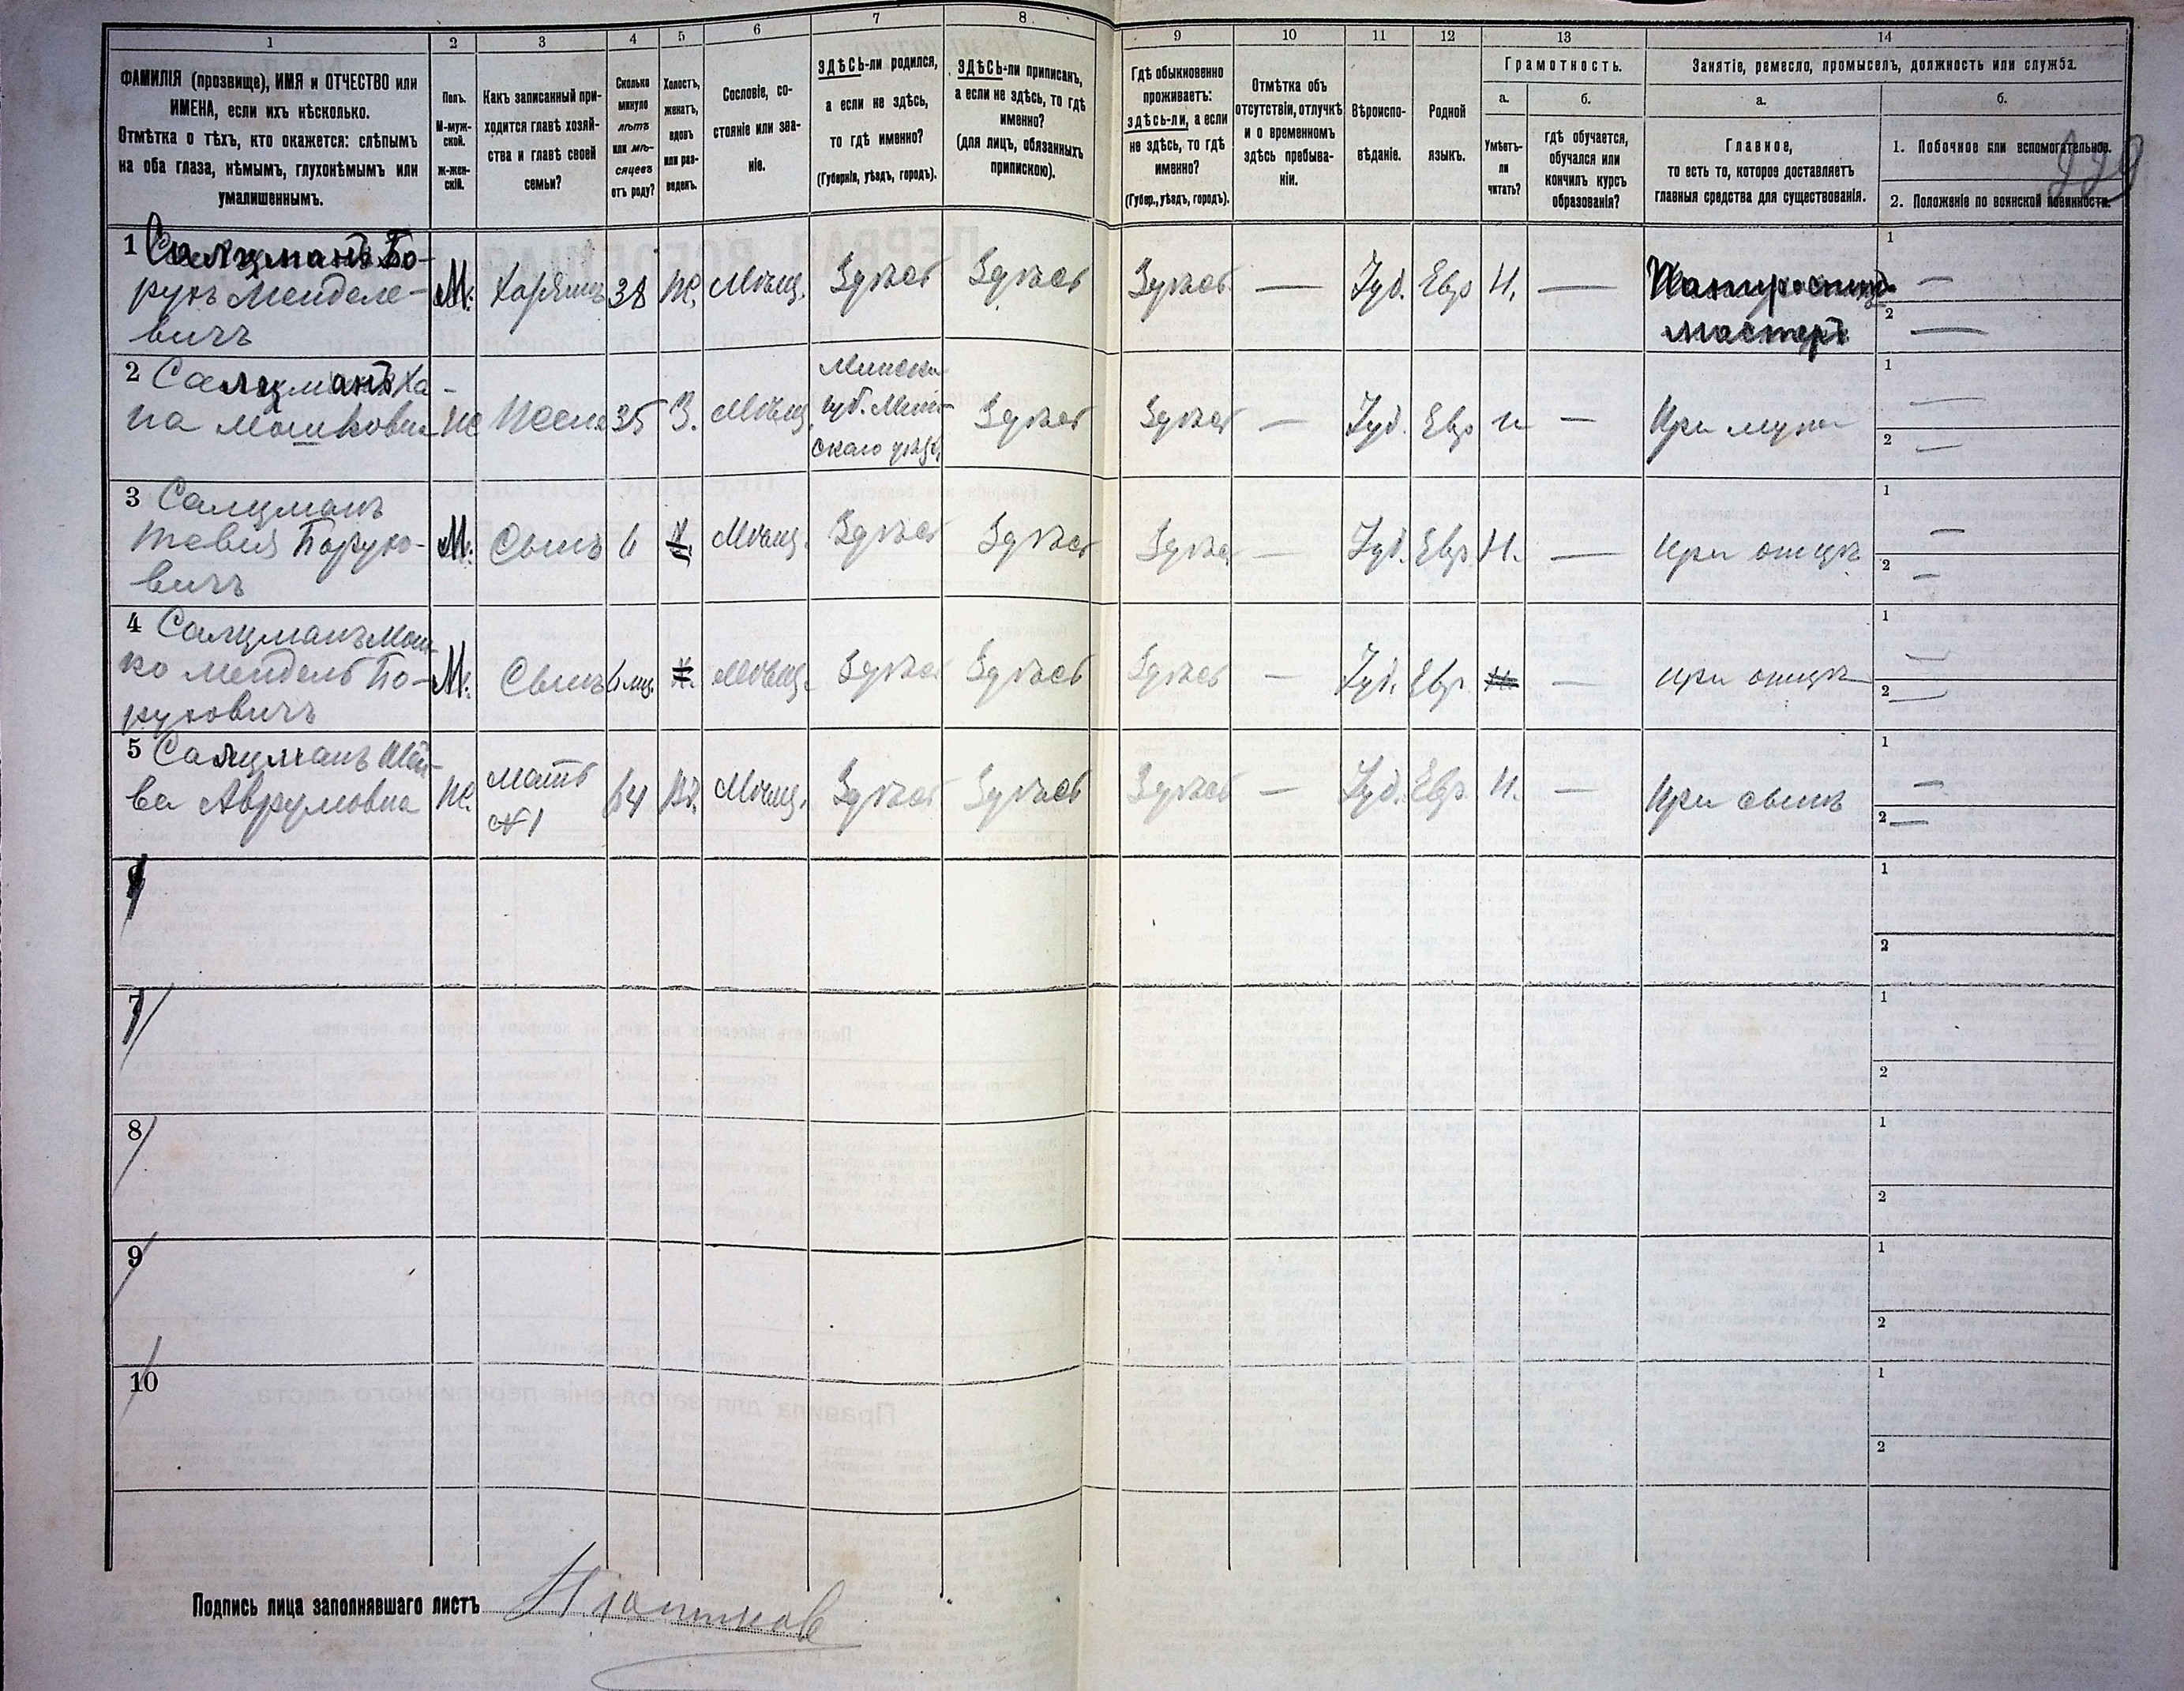 1 2 3 4 5 6 7 8 9 10 11 12 13 14
ФАМИЛІЯ (прозвище), ИМЯ и ОТЧЕСТВО или
ИМЕНА, если ихъ нѣсколько.
Отмѣтка о тѣхъ, кто окажется: слѣпымъ
на оба глаза, нѣмымъ, глухонѣмымъ или
умалишеннымъ.
Полъ.
М-муж-
ской.
ж-жен-
скій.
Какъ записанный при-
ходится главѣ хозяй-
ства и главѣ своей
семьи?
Сколько
минуло
лѣтъ
или мѣ-
сяцевъ
отъ роду?
Холостъ,
женатъ,
вдовъ
или раз-
веденъ.
Сословіе, со-
стояніе или зва-
ніе.
ЗДѢСЬ-ли родился,
а если не здѣсь,
то гдѣ именно?
(Губернія, уѣздъ, городъ).
ЗДѢСЬ-ли приписанъ,
а если не здѣсь, то гдѣ
именно?
(для лицъ, обязанныхъ
припискою).
Гдѣ обыкновенно
проживаетъ:
здѣсь-ли, а если
не здѣсь, то гдѣ
именно?
(Губер., уѣздъ, городъ).
Отмѣтка объ
отсутствіи, отлучкѣ
и о временномъ
здѣсь пребыва-
ніи.
Вѣроиспо-
вѣданіе.
Родной
языкъ.
Грамотность.
а.
Умѣетъ-
ли
читать?
б.
гдѣ обучается,
обучался или
кончилъ курсъ
образованія?
Занятіе, ремесло, промыселъ, должность или служба.
а.
Главное,
то есть то, которое доставляетъ
главныя средства для существованія.
б.
1. Побочное или вспомогательное.
2. Положеніе по воинской повинности.
1 Салцманъ Бо-
рухъ Менделе-
вичъ
М. Хозяинъ 38 Ж. Мѣщ. Здѣсь Здѣсь Здѣсь — Іуд. Евр Н. —
Папиросный
мастеръ
1 —
2 —
2 Салцманъ Ха-
на Мошковна
Ж Жена 35 З. Мѣщ
Минской
губ. Мин-
скаго уѣзд.
Здѣсь Здѣсь — Іуд. Евр н — При мужѣ
1 —
2 —
3 Салцманъ
Тевія Борухо-
вичъ
М. Сынъ 6 Х. Мѣщ. Здѣсь Здѣсь Здѣсь — Іуд. Евр Н. — При отцѣ
1 —
2 —
4 Салцманъ Мош-
ко Мендель Бо-
руховичъ
М. Сынъ 6 мц. Х. Мѣщ. Здѣсь Здѣсь Здѣсь — Іуд. Евр. Н. — При отцѣ
1 —
2 —
5 Салцманъ
ва Аврумовна
Ж. мать
№ 1
64 Вд. Мѣщ. Здѣсь Здѣсь Здѣсь — Іуд. Евр. Н. — При сынѣ
1 —
2 —
6
1
2
7
1
2
8
1
2
9
1
2
10
1
2
Подпись лица заполнявшаго листъ